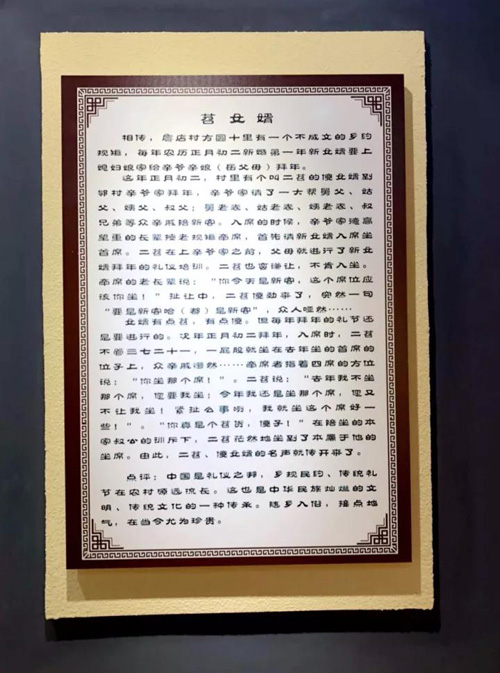 苕女婿
相传，詹店村方圆十里有一个不成文的乡约
规矩，每年农历正月初二新婚第一年新女婿要上
媳妇娘家给亲爷亲娘（岳父母）拜年。
这年正月初二，村里有个叫二苕的傻女婿到
邻村亲爷家拜年，亲爷家请了一大帮舅父、姑
父、姨父、叔父；舅老表、姑老表、姨老表、叔
兄弟等众亲戚陪新客。入席的时候，亲爷家德高
望重的长辈按老规矩牵席，首先请新女婿入席坐
首席。二苕在上亲爷家之前，父母就进行了新女
婿拜年的礼仪培训。二苕也客谦让，不肯入坐。
牵席的老长辈说：“你今天是新客，这个席位应
该你坐！”扯让中，二苕傻劲来了，突然一句
“要是新客哈（都）是新客”，众人哑然……
女婿有点苕，有点傻。但每年拜年的礼节还
是要进行的。次年正月初二拜年，入席时，二苕
不管三七二十一，一屁股就坐在去年坐的首席的
位子上，众亲戚愕然……牵席者指着四席的方位
说：“你坐那个席！”。二苕说：“去年我不坐
那个席，您要我坐！今年我还是坐那个席，您又
不让我坐！紧扯么事哟，我就坐这个席好一
些！”。“你真是个苕货，傻子！”在陪坐的本
家叔公的训斥下，二苕茫然地坐到了本属于他的
坐席。由此，二苕、傻女婿的名声就传开来了。
点评：中国是礼仪之邦，乡规民约、传统礼
节在农村源远流长。这也是中华民族灿烂的文
明、传统文化的一种传承。随乡入俗，接点地
气，在当今尤为珍贵。